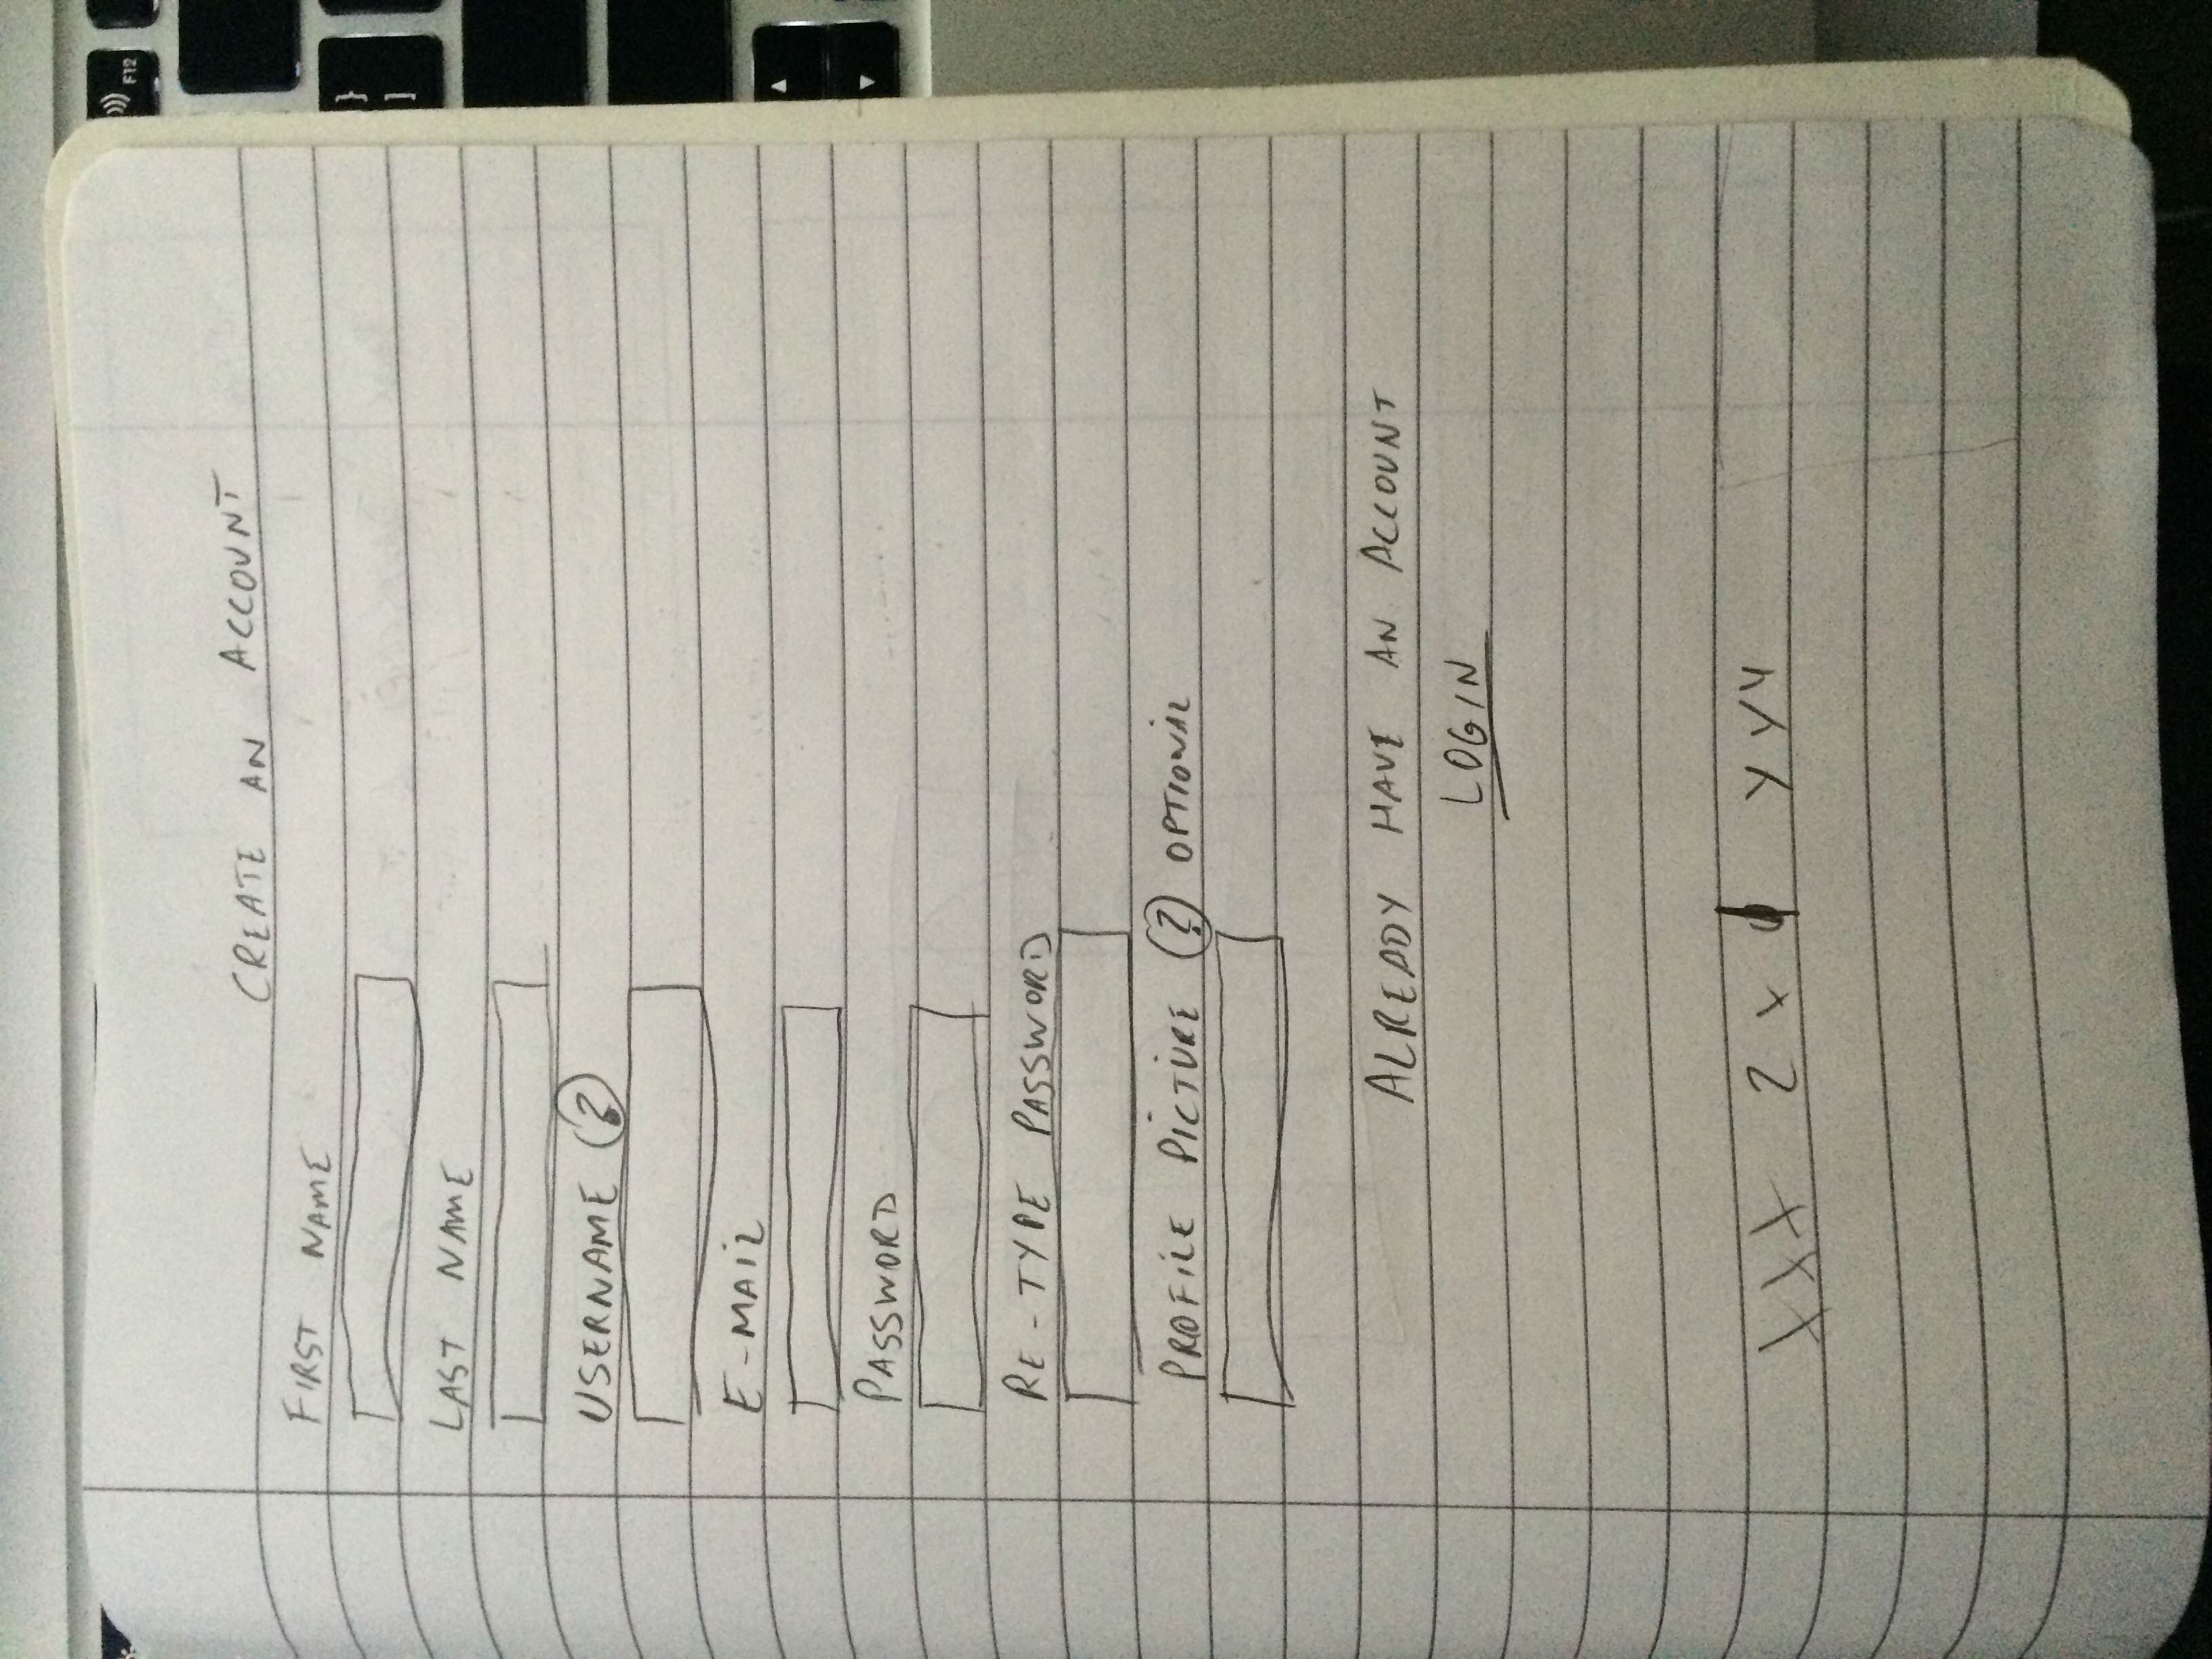 CREATE AN ACCOUNT
FIRST NAME
LAST NAME
USERNAME ?
E-MAIL
PASSWORD
RE-TYPE PASSWORD
PROFILE PICTURE ? OPTIONAL
ALREADY HAVE AN ACCOUNT
LOGIN
XXX 2 x yyy
F12
}
]